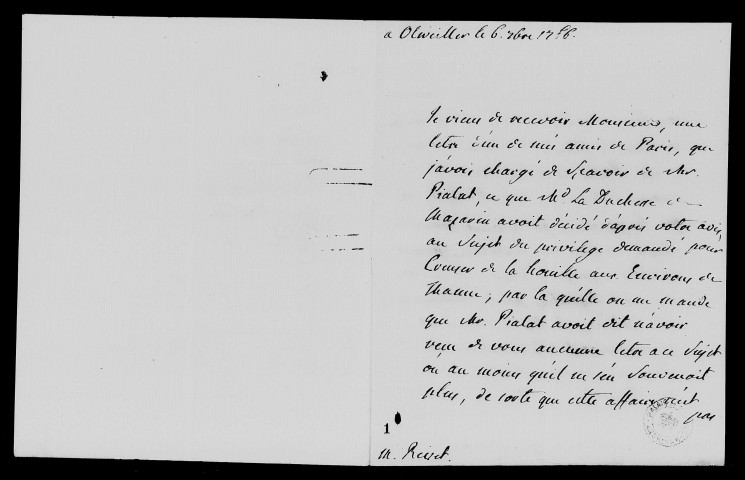 a Olweiller le 6. 7bre 17
Je viens de recevoir Monsieur, une
letre d'un de mes amis de Paris, que
j'avois chargé de sçavoir de Mr.
Pialat, ce que Md La Duchesse de
Mazarin avoit décidé d'après votre avis,
au Sujet du privilege demandé pour
Creuser de la houille aux Environs de
Thanne; par la quélle on me mande
que Mr. Pialat avoit dit n'avoir
recu de vous aucunne letre a ce Sujet
ou au moins qu'il ne s'en Souvenoit
plus, de sorte que cette affaire n'ét
pas
1
M. Reiset.